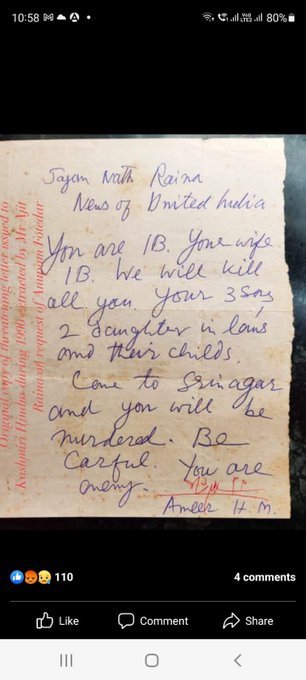 10:58
80%
Jagan Nath Raina
News of United India
You are IB. Your wife
IB. We will kill
all you. Your 3 sons
2 daughter in laws
and their childs.
Come to Srinagar
and you will be
murdered. Be
Carful. You are
enemy.
Ameer H.M.
Original copy of threatening letter issued to
Kashmiri Hindus during 1990 extracted by Mr Ajit
Raina on request of Anupam
110
4 comments
Like
Comment
Share